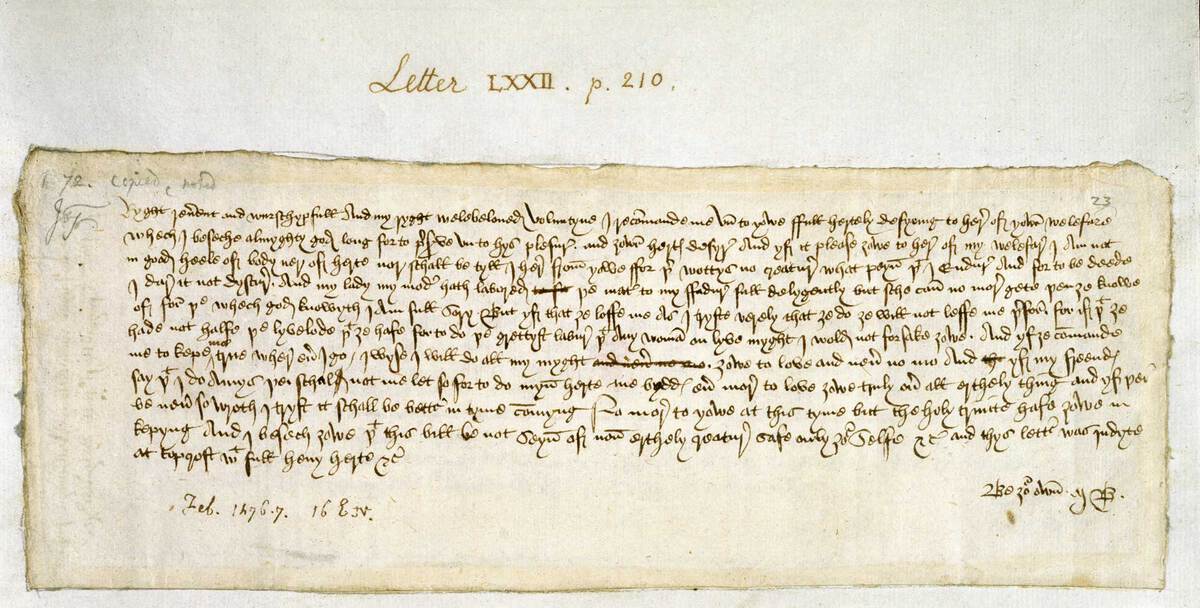 Letter LXXII. p. 210.
72. copied noted
23
Ryght reverent and wurschypfull And my ryght welebeloved Voluntyne I recomande me vn to yowe ffull hertely desyring to here of yowr welefare
Whech I beseche almyghty god long for to preserve vn to hys plesur. and ȝowr hertys desyre And yf it please ȝowe to here of my welefar I Am not
in good heele of body ner of herte nor schall be tyll I here from yowe ffor þer wottys no creature what peyn þt I Endure And for to be deede
I dare it not dyscure. And my lady my moder hath labored þe mater to my ffadure full delygently but sche can no more gete þen ȝe knowe
of for þe whech god knowyth I am full sory But yf that ȝe loffe me As I tryste verely that ȝe do ȝe will not leffe me þerfor. for if þt ȝe
hade not halfe þe lyvelode þt ȝe hafe for to do þe grettyst labure þt Any woman on lyve myght I wold not forsake ȝowe. And yf ȝe comande
me to kepe me true wher ever I go, I wyse I will do all my myght ȝowe to love and never no mo And yf my freends
say þt I do Amys þei schal not me let so for to do myn herte me bydds ever more to love ȝowe truly over all erthely thing And yf þei
be never so wroth I tryst it schall be better in tyme comyng No more to yowe at this tyme but the holy trinite hafe ȝowe in
kepyng And I besech ȝowe þt this bill be not seyn of non erthely creature safe only ȝour selfe &c and thys letter was indyte
at topcroft wt full hevy herte &c
Be ȝour own M B.
Feb. 1476.7. 16 E.